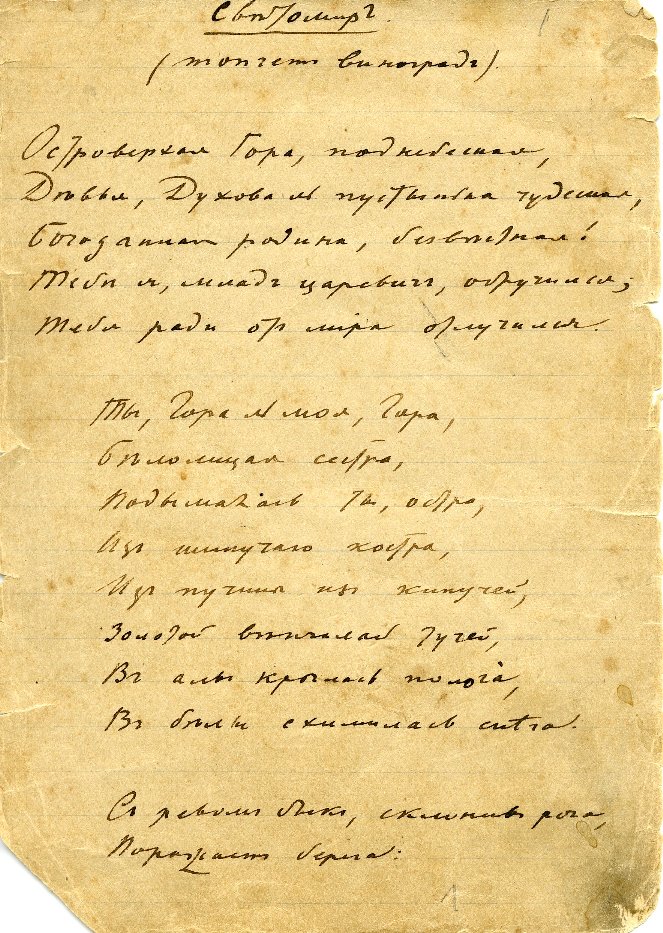 Свѣтомиръ.
(топчетъ виноградъ).
Островерхая Гора, поднебесная,
Дѣвья, Духова ль пустынька чудесная,
Богоданная родина, безвѣстная!
Тебѣ я, младъ царевичъ, обручился;
Тебя ради отъ міра отлучился.
Ты, Гора ль моя, Гора,
Бѣлолицая сестра,
Подымалась ты, остра,
Изъ шипучаго костра,
Изъ пучины изъ кипучей,
Золотой вѣнчалась тучей,
Въ алы крылась полога,
Въ бѣлы схимилась снѣга.
Съ ревомъ быкъ, склонивъ рога,
Поражаетъ берега:
1